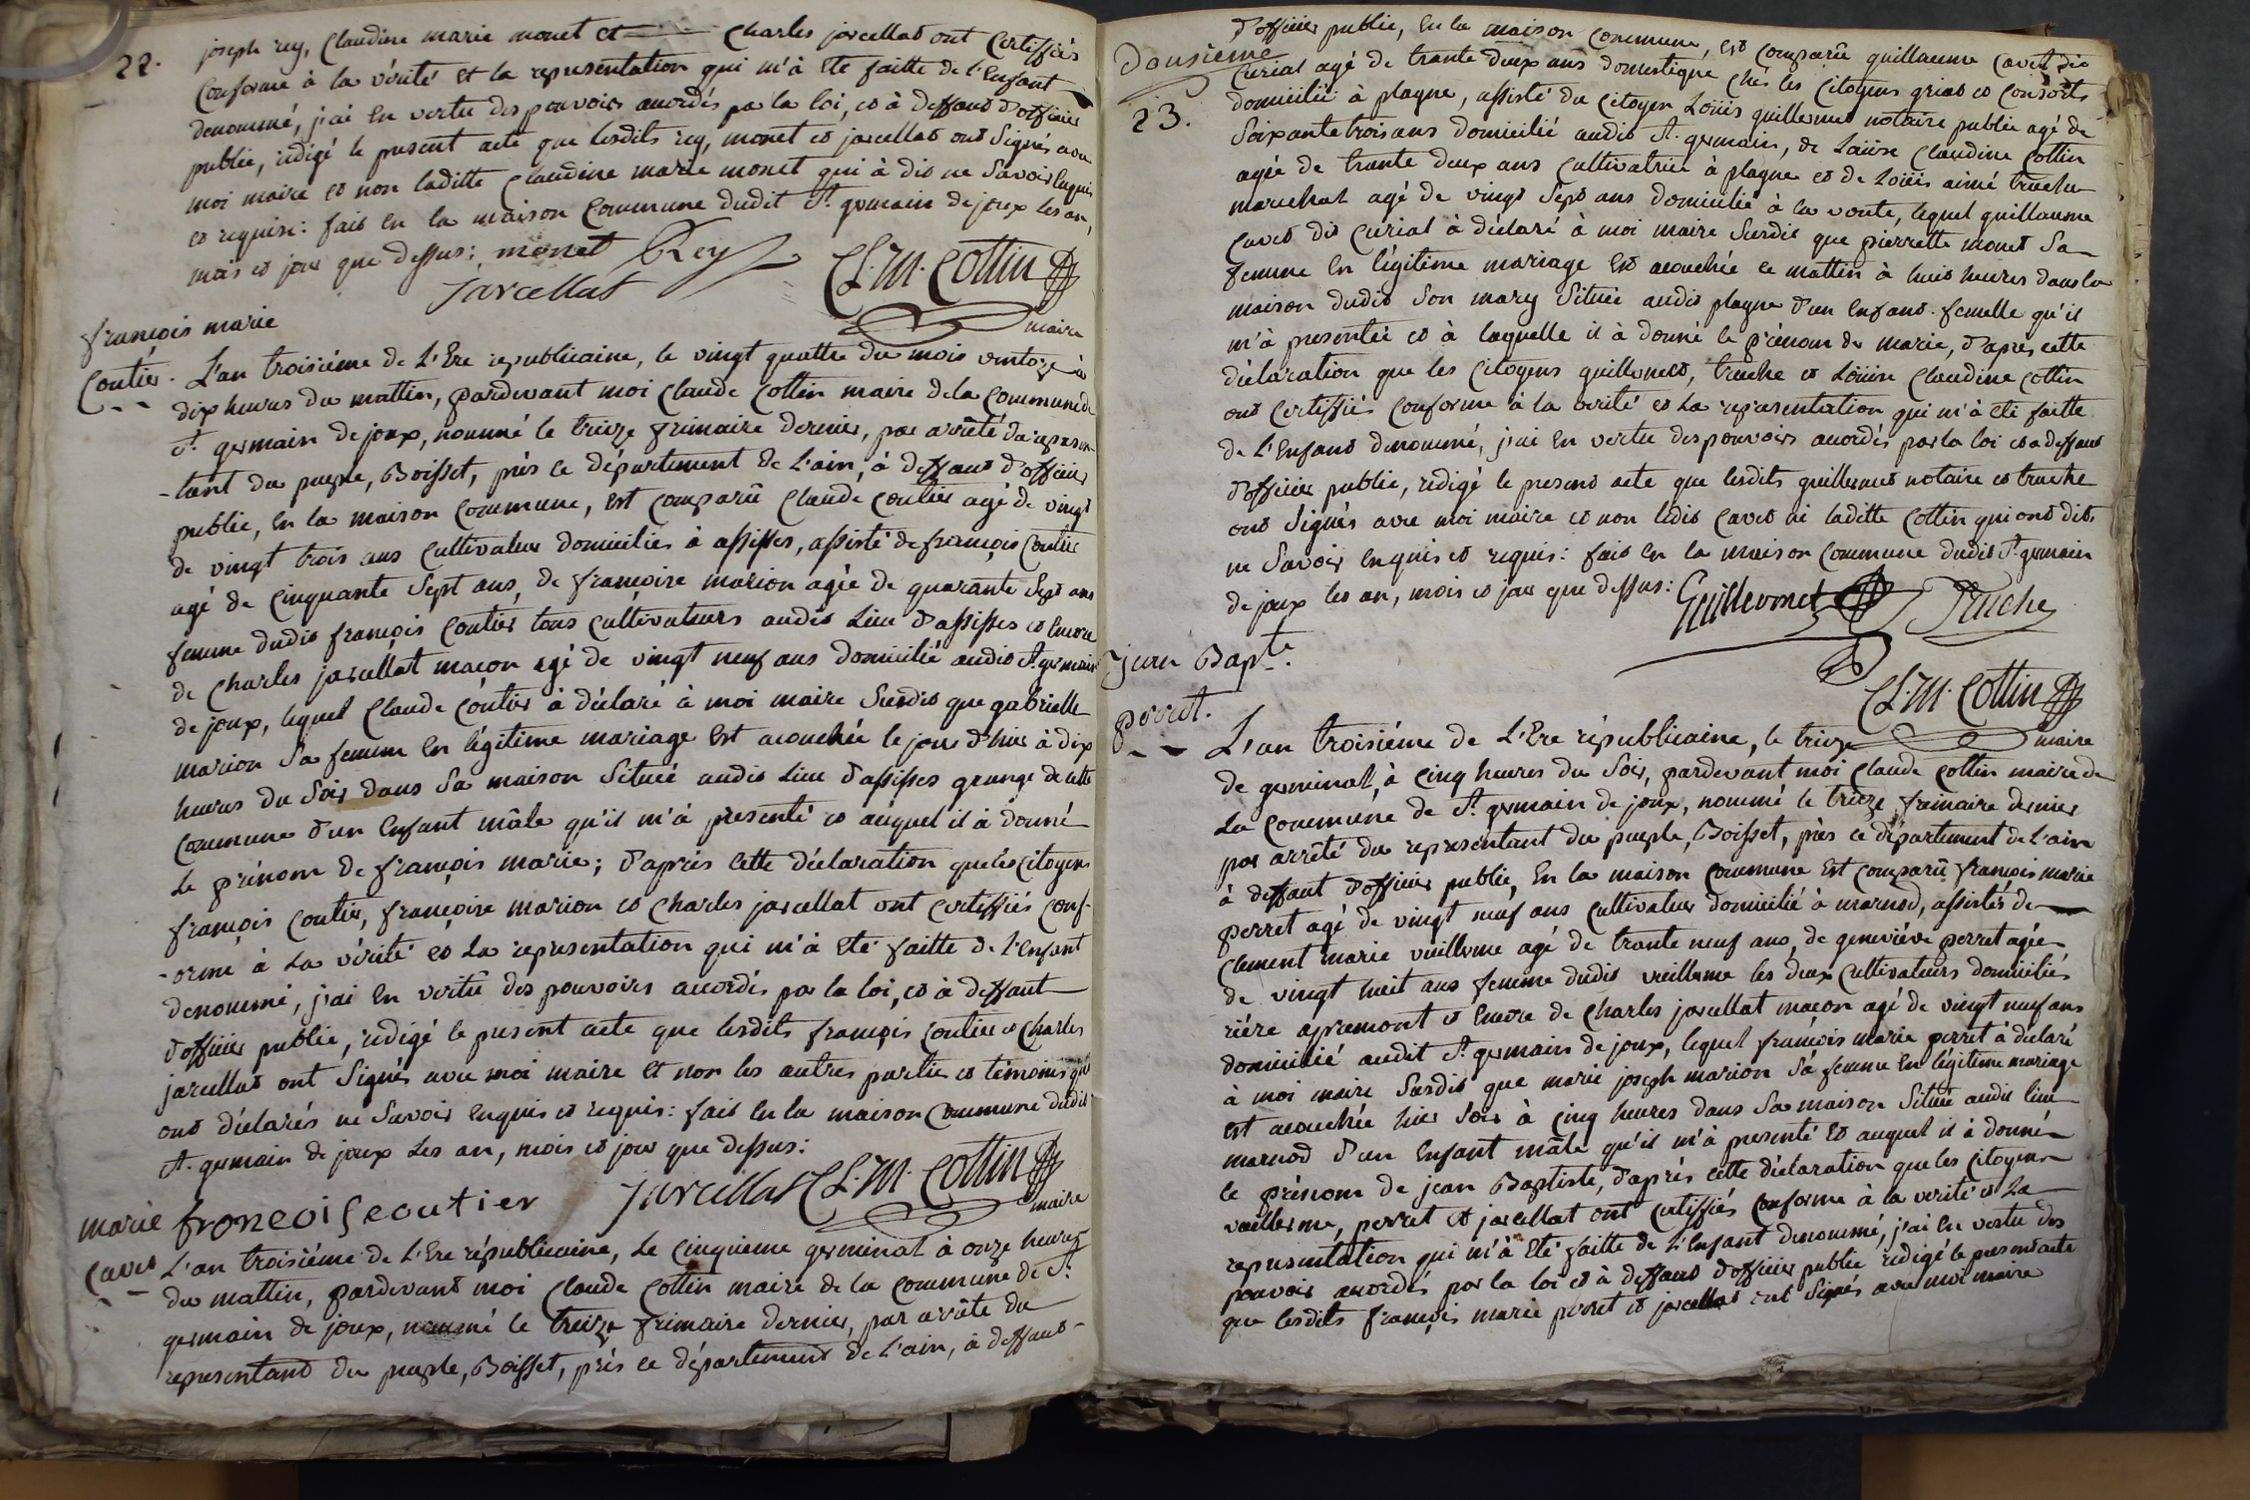 22.
joseph rey, Claudine marie monet et Charles jarcellat ont Certiffiés
Conforme à la vérité et la representation qui m'à eté faitte de l'Enfant
denommé, j'ai En vertu des pouvoirs accordés par la loi, et à deffaut d'officier
public, rédigé le present acte que lesdits rey, monet et jarcellat ont Signés avec
moi maire et non laditte Claudine marie monet qui à dit ne Savoir Enquise
et requise: fait En la maison Commune dudit St. germain de joux les an,
mois et jour que dessus:
monet Rey
jarcellat Cl. M. Cottin
maire
françois marie
Coutier.
L'an troisiéme de L'Ere republicaine, le vingt quattre du mois ventoze à
dix heures du mattin, pardevant moi Claude Cottin maire de la Commune de
St. germain de joux, nommé le treize frimaire dernier, par arrêté du represen-
-tant du peuple, Boisset, près ce département de L'ain, à deffaut d'officier
public, En la maison Commune, est Comparû Claude Coutier agé de vingt
de vingt trois ans Cultivateur domicilié à assisses, assisté de françois Coutier
agé de Cinquante Sept ans, de françoise marion agée de quarante Sept ans
femme dudit françois Coutier tous Cultivateurs audit Lieu d'assisses et Encore
de Charles jarcellat maçon agé de vingt neuf ans domicilié audit St. germain
de joux, lequel Claude Coutier à déclaré à moi maire Susdit que gabrielle
marion Sa femme En légitime mariage Est acouchée le jour d'hier à dix
heures du Soir dans Sa maison Située audit Lieu d'assisses grange de cette
Commune d'un Enfant mâle qu'il m'à presenté et auquel il à donné
Le prénom de françois marie; d'après cette déclaration que les Citoyens
françois Coutier, françoise marion et Charles jarcellat ont certiffiés Conf-
-orme à La vérité et La representation qui m'à Eté faitte de l'Enfant
denommé, j'ai En vertû des pouvoirs accordés par la loi, et à deffaut
d'officier public, rédigé le present acte que lesdits françois Coutier et Charles
jarcellat ont Signés avec moi maire et non les autres parties et témoins qui
ont déclarés ne Savoir Enquis et requis: fait En la maison Commune dudit
St. germain de joux Les an, mois et jour que dessus:
francois coutier jarcellat Cl. M. Cottin
maire
marie
Cavet
L'an troisiéme de L'Ere républicaine, Le Cinquieme germinal à onze heures
du mattin, pardevant moi Claude Cottin maire de la Commune de St.
germain de joux, nommé le treize frimaire dernier, par arrête du
representant du peuple, Boisset, près ce département de L'ain, à deffaut-
d'officier public, En la maison Commune, est Comparû guillaume Cavet dit
Dousieme
23.
Curial agé de trante deux ans domestique chés les Citoyens griat et Consorts
domicilié à plagne, assisté du Citoyen Loüis guillermet notaire public agé de
Soixante trois ans domicilié audit St. germain, de Loüise Claudine Cottin
agée de trante deux ans Cultivatrice à plagne et de Loüis aimé truche
marechal agé de vingt Sept ans domicilié à la voute, lequel guillaume
Cavet dit Curial à déclaré à moi maire Susdit que pierrette monet Sa
femme En légitime mariage Est acouchée ce mattin à huit heures dans la
maison dudit Son mary Située audit plagne d'un Enfant femelle qu'il
m'à presentée et à laquelle il à donné le prénom de marie, d'après cette
déclaration que les Citoyens guillermet, truche et Loüise Claudine Cottin
ont Certiffiés Conforme à la vérité et La representation qui m'à eté faitte
de L'Enfant denommé, j'ai En vertu des pouvoirs accordés par la loi et a deffaut
d'officier public, rédigé le present acte que lesdits guillermet notaire et truche
ont Signés avec moi maire et non ledit Cavet ni laditte Cottin qui ont dits
ne Savoir Enquis et requis: fait En la maison Commune dudit St. germain
de joux les an, mois et jour que dessus:
Guillermet Truche
Cl. M. Cottin
maire
jean Bapte.
perret.
L'an troisiéme de L'Ere républicaine, le treize
de germinal, à Cinq heures du Soir, pardevant moi Claude Cottin maire de
La Commune de St. germain de joux, nommé le treize frimaire dernier
par arrêté du representant du peuple, Boisset, près ce département de L'ain
à deffaut d'officier public, En la maison Commune Est Comparû françois marie
perret agé de vingt neuf ans Cultivateur domicilié à marnod, assistés de
Clement marie vuillerme agé de trante neuf ans, de geneviéve perret agée
de vingt huit ans femme dudit vuillerme les deux Cultivateurs domiciliés
riére apremont et Encore de Charles jarcellat maçon agé de vingt neuf ans
domicilié audit St. germain de joux, lequel françois marie perret à déclaré
à moi maire Susdit que marie joseph marion Sa femme En légitime mariage
est acouchée hier Soir à Cinq heures dans Sa maison Située audit lieu
marnod d'un Enfant mâle qu'il m'à presenté Et auquel il à donné
le prénom de jean Baptiste, d'aprés cette déclaration que les Citoyens
vuillerme, perret et jarcellat ont certiffiés Conforme à la verité et La
representation qui m'à Eté faitte de L'Enfant denommé, j'ai En vertu des
pouvoir accordés par la loi et à deffaut d'officier public rédigé le present acte
que lesdits françois marie perret et jarcellat ont Signés avec moi maire